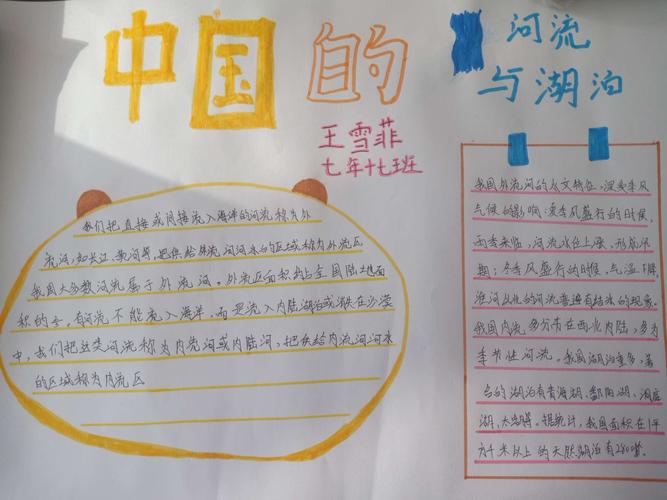 中国的
河流
与湖泊
王雪菲
七年十七班
我们把直接或间接流入海洋的河流称为外
流河,如长江、黄河等,把供给外流河河水的区域称为外流区
我国大多数河流属于外流河。外流区面积约占全国陆地面
积的 。有河流不能流入海洋,而是流入内陆湖泊或消失在沙漠
中,我们把这类河流称为内流河或内陆河,把供给内流河河水
的区域称为内流区
我国外流河的水文特征,深受季风
气候的影响。夏季风盛行的时候,
雨季来临,河流水位上涨,形成汛
期;冬季风盛行的时候,气温下降
淮河以北的河流普遍有结冰的现象。
我国内流 多分布在西北内陆,多为
季节性河流。我国湖泊众多,著
名的湖泊有青海湖、鄱阳湖、洞庭
湖、太湖等。据统计,我国面积在1平
方千米以上的天然湖泊有2800